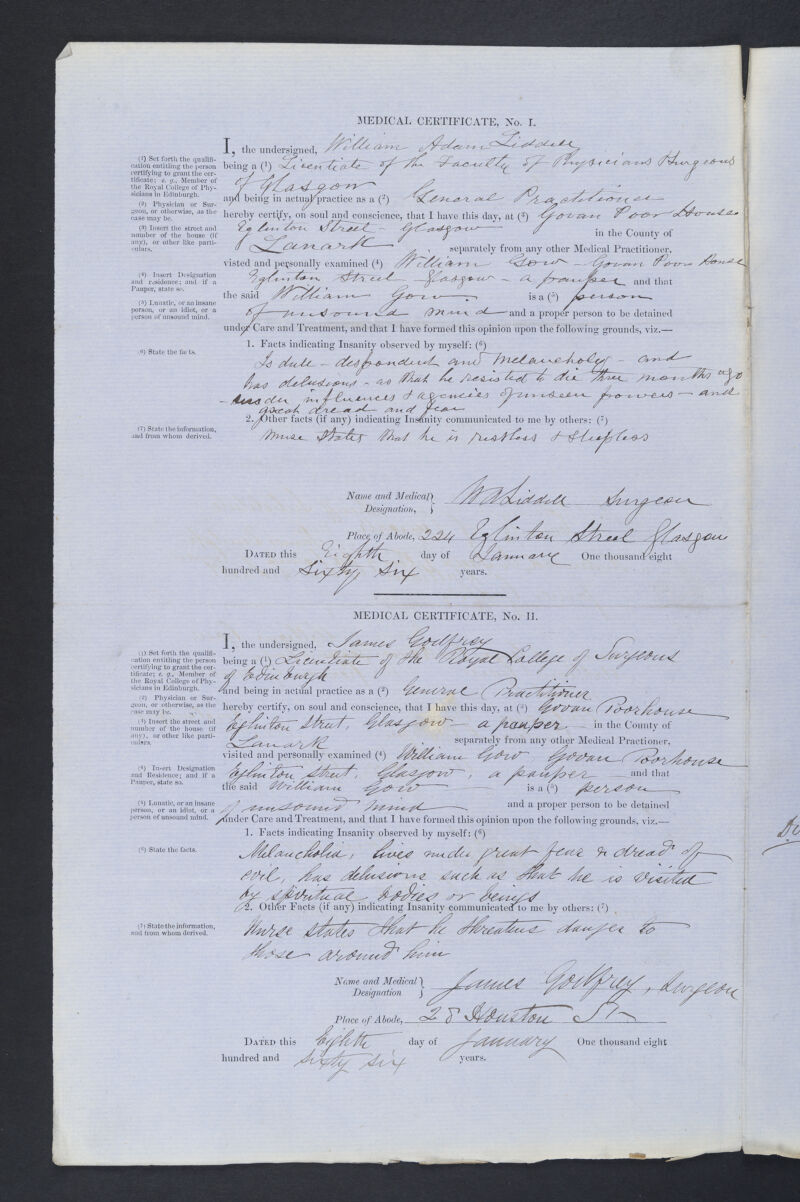 MEDICAL CERTIFICATE, No. I.
I, the undersigned, William Adam Liddell
being a (1) Licentiate of the Faculty of Physicians & Surgeons
of Glasgow
and being in actual practice as a (2) General Practitioner
hereby certify, on soul and conscience, that I have this day, at (3) Govan Poor House
Eglinton Street - Glasgow in the County of
Lanark separately from any other Medical Practitioner,
visted and personally examined (4) William Gow - Govan Poor House
Eglinton Street Glasgow - a pauper and that
the said William Gow. is a (5) person
of unsound mind and a proper person to be detained
under Care and Treatment, and that I have formed this opinion upon the following grounds, viz.—
1. Facts indicating Insanity observed by myself: (6)
Is dule - despondent and melancholy - and
has delusions - as that he resisted to die three months ago
- under influences & agencies of unseen powers - and
great dread and fear
2. Other facts (if any) indicating Insanity communicated to me by others: (7)
Nurse States that he is restless & sleepless
Name and Medical Designation, W A Liddell Surgeon
Place of Abode, 224 Eglinton Street Glasgow
DATED this Eighth day of January One thousand eight
hundred and Sixty Six years.
(1) Set forth the qualifi-
cation entitling the person
certifying to grant the cer-
tificate; e. g., Member of
the Royal College of Phy-
sicians in Edinburgh.
(2) Physician or Sur-
geon, or otherwise, as the
case may be.
(3) Insert the street and
number of the house (if
any), or other like parti-
culars.
(4) Insert Designation
and residence; and if a
Pauper, state so.
(5) Lunatic, or an insane
person, or an idiot, or a
person of unsound mind.
(6) State the facts.
(7) State the information,
and from whom derived.
MEDICAL CERTIFICATE, No. II.
I, the undersigned, James Godfrey
being a (1) Licentiate of the Royal College of Surgeons
of Edinburgh
and being in actual practice as a (2) General Practitioner
hereby certify, on soul and conscience, that I have this day, at (3) Govan Poorhouse
Eglinton Street, Glasgow - a pauper - in the County of
Lanark separately from any other Medical Practioner,
visited and personally examined (4) William Gow Govan Poorhouse
Eglinton Street, Glasgow, a pauper and that
the said William Gow is a (5) person
of unsound mind and a proper person to be detained
under Care and Treatment, and that I have formed this opinion upon the following grounds, viz.—
1. Facts indicating Insanity observed by myself: (6)
Melancholia, lives under great fear & dread of
evil, has delusions such as that he is visited
by spiritual bodies or beings
2. Other Facts (if any) indicating Insanity communicated to me by others: (7)
Nurse states that he threatens danger to
those around him
Name and Medical Designation James Godfrey, Surgeon
Place of Abode, 28 Houston St
DATED this Eighth day of January One thousand eight
hundred and sixty six years.
(1) Set forth the qualifi-
cation entitling the person
certifying to grant the cer-
tificate; e. g., Member of
the Royal College of Phy-
sicians in Edinburgh.
(2) Physician or Sur-
geon, or otherwise, as the
case may be.
(3) Insert the street and
number of the house (if
any), or other like parti-
culars.
(4) Insert Designation
and Residence; and if a
Pauper, state so.
(5) Lunatic, or an insane
person, or an idiot, or a
person of unsound mind.
(6) State the facts.
(7) State the information,
and from whom derived.